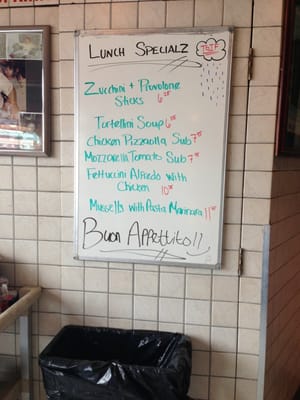 Lunch Specialz
TGIF
Zucchini + Provolone
Sticks
Tortellini Soup
Chicken Pizzaiolla Sub
Mozzarella Tomato Sub
Fettuccini Alfredo with
Chicken
Mussells with Pasta Marinara
Buon Appettito!!